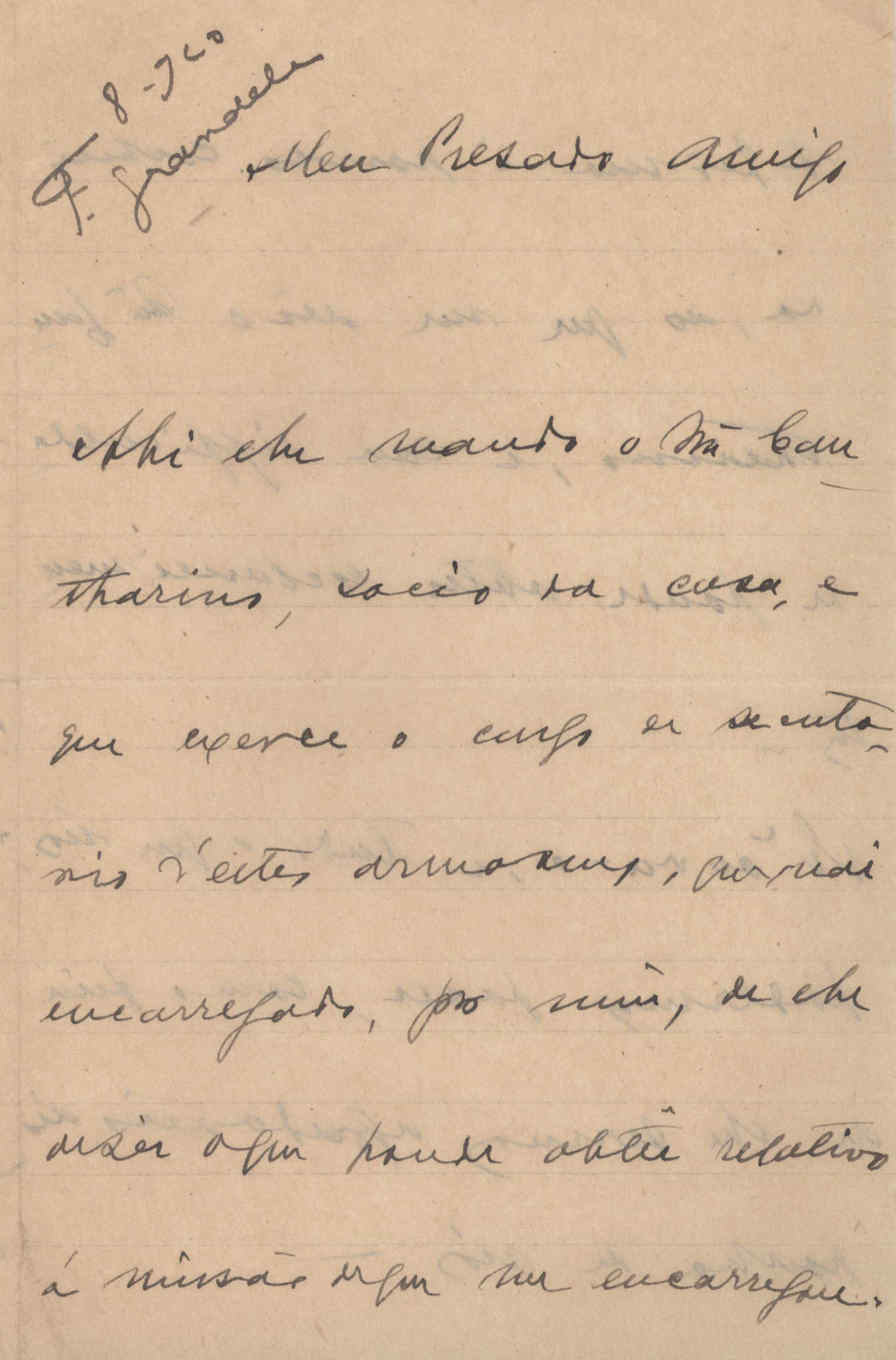 8-910
F. Grandela
Meu Presado Amigo
Ahi lhe mando o Snr Can
tharino, socio da casa, e
que exerce o cargo de secreta-
rio d'estes armazens, que vai
encarregado, por mim, de lhe
dizer o que poude obter relativo
á missão de que me encarregou.